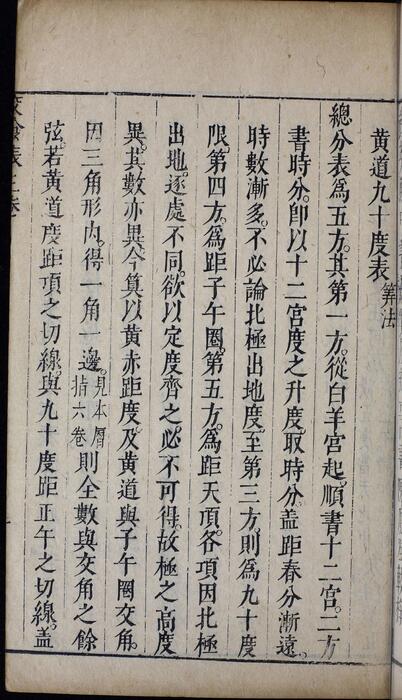 黄道九十度表筭法
總分表為五方。其第一方。從白羊宫起。順書十二宫。二方
書時分。即以十二宫度之升度。取時分。蓋距春分漸遠。
時數漸多。不必論北極出地度。至第三方。則為九十度
限。第四方。為距子午圈。第五方。為距天頂。各項因北極
出地。逐處不同。欲以定度齊之。必不可得。故極之高度
異。其數亦異。今筭以黄赤距度。及黄道與子午圈交角。
因三角形内。得一角一邊。見本曆指六卷則全數與交角之餘
弦。若黄道度距頂之切線。與九十度距正午之切線。蓋
交食表